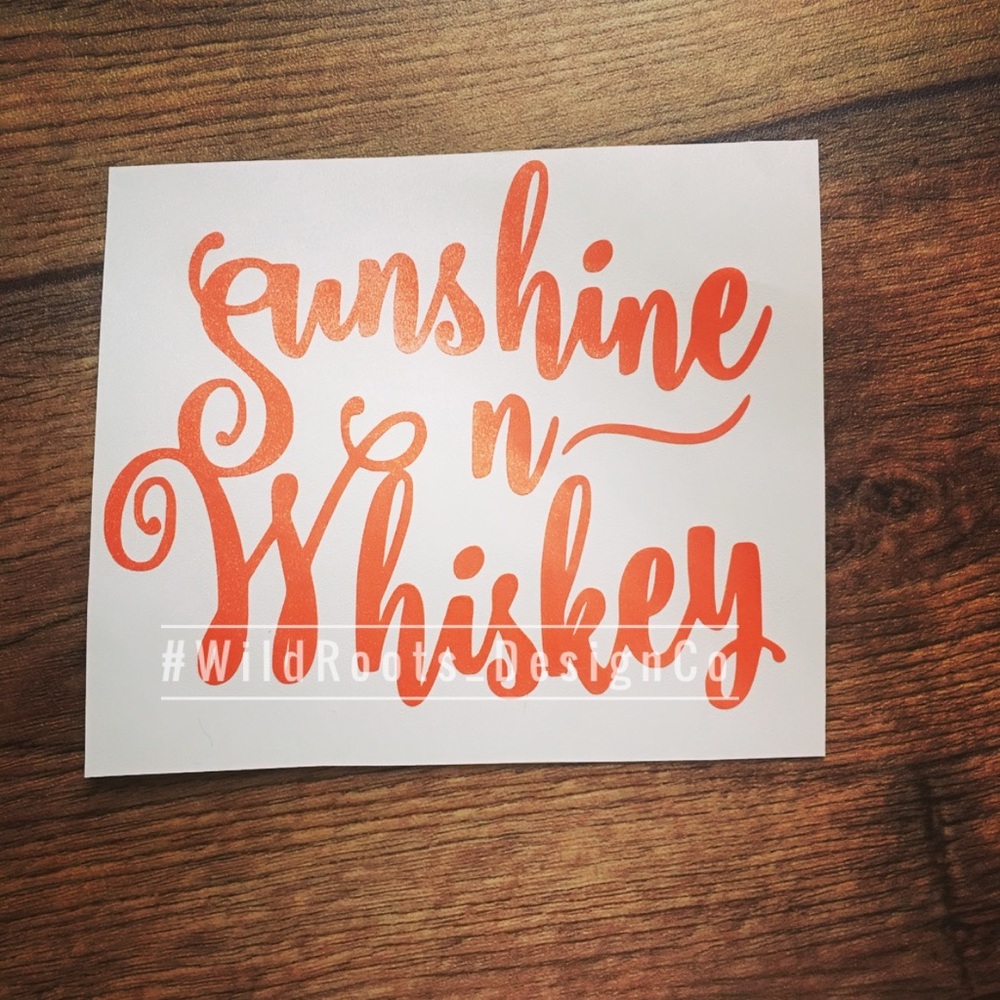 Sunshine
n
Whiskey
#WildRoots_DesignCo